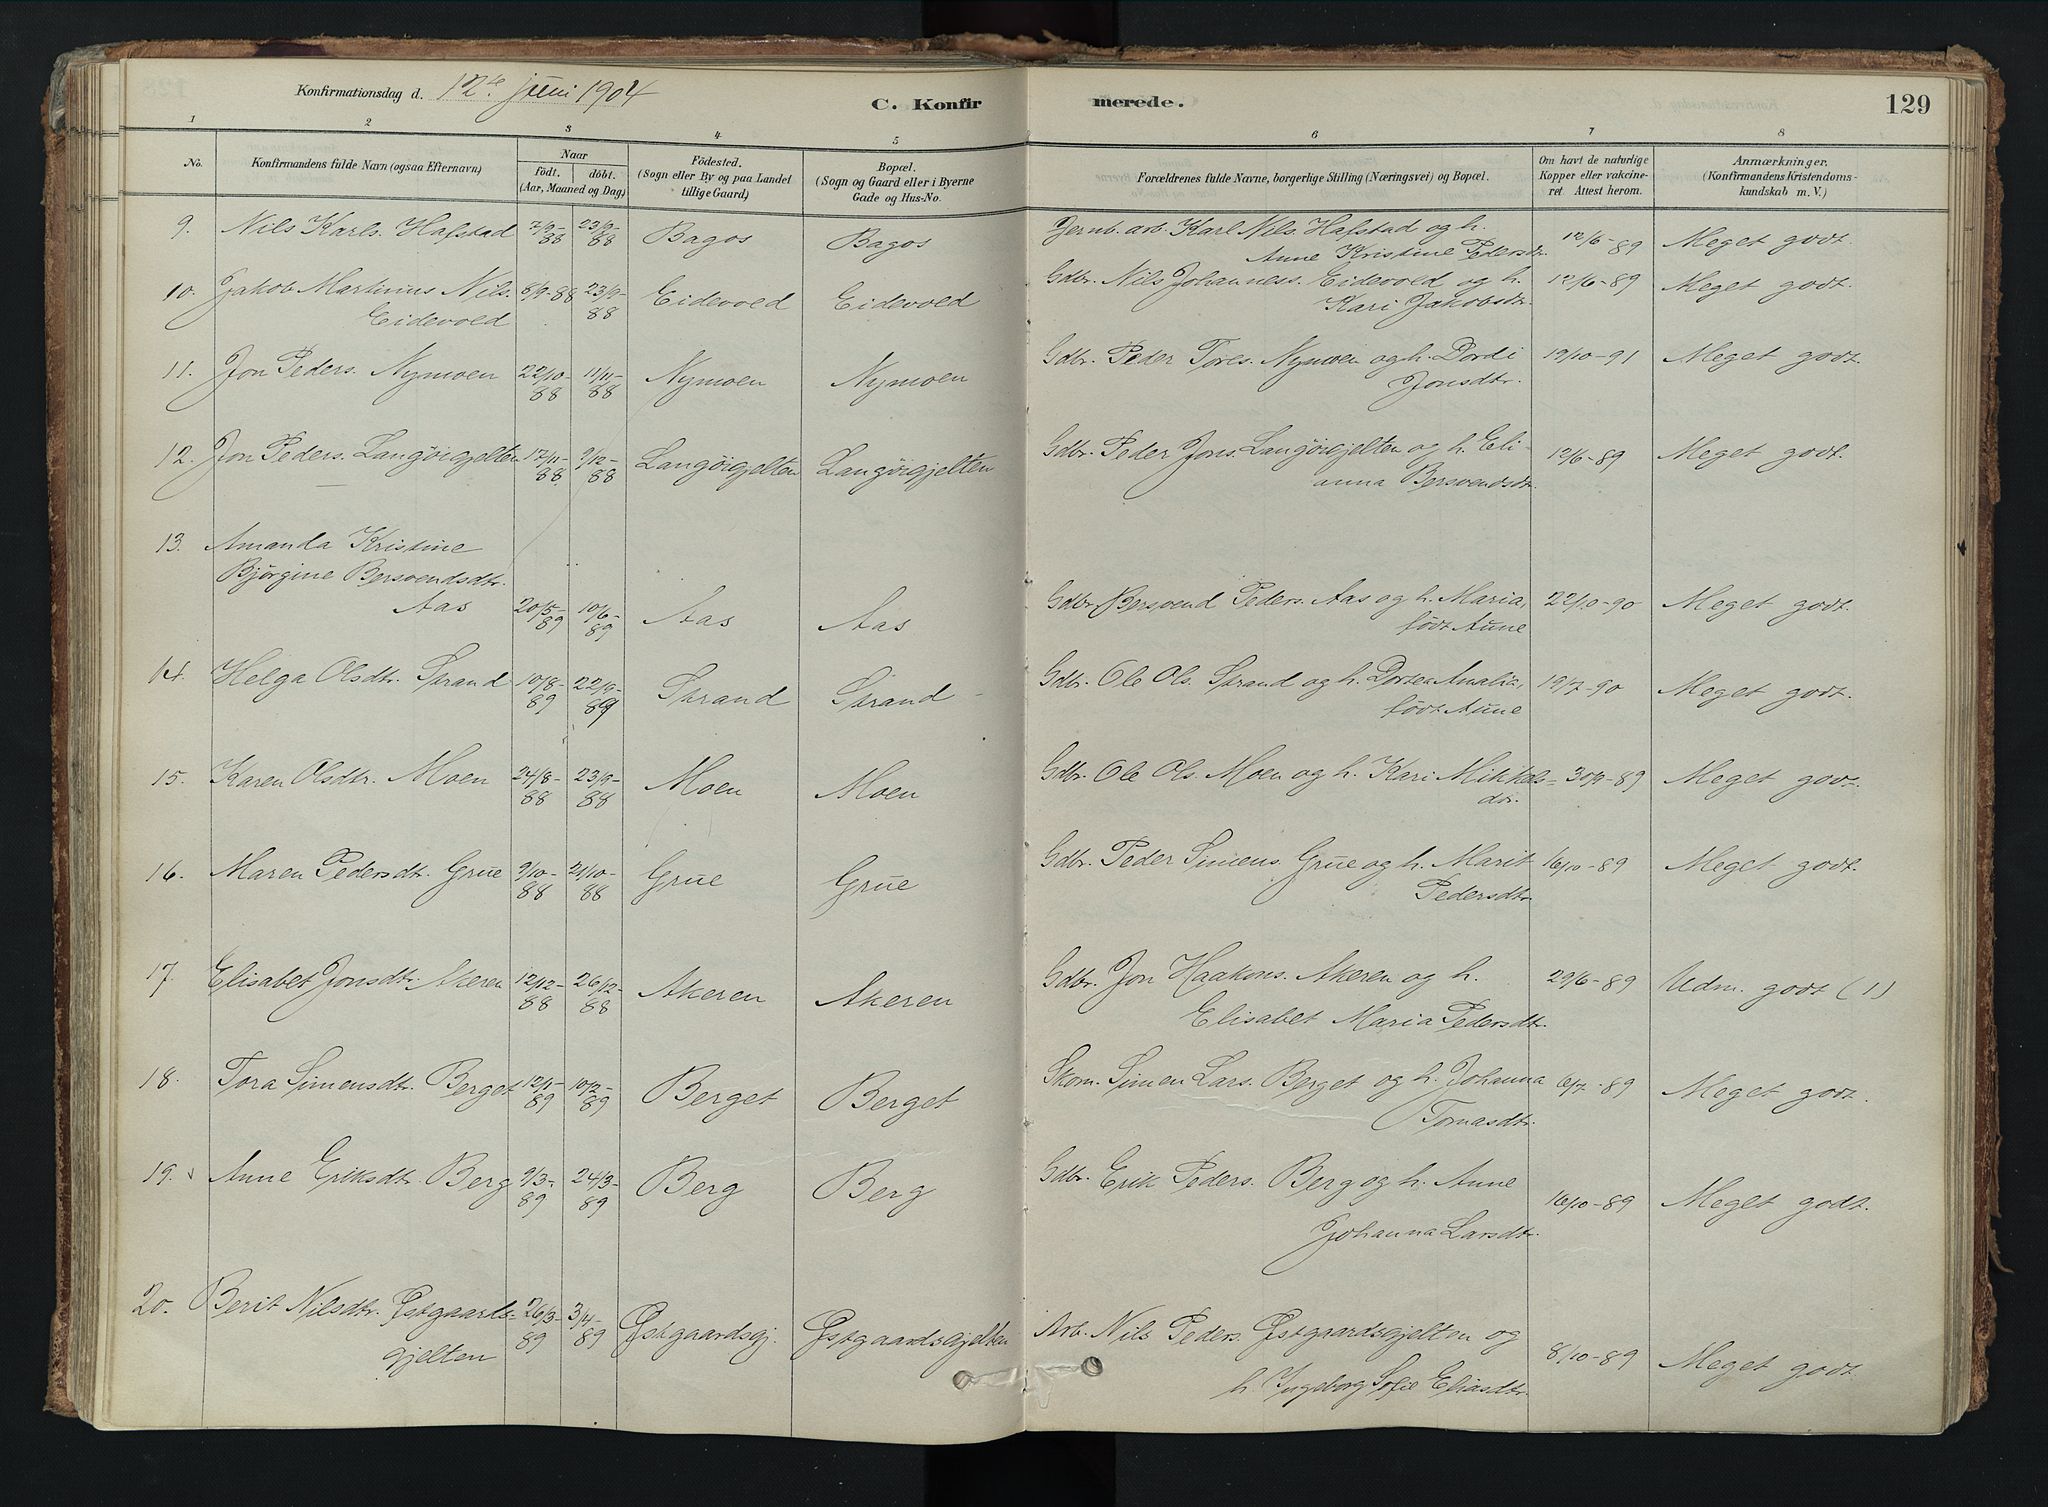 Konfirmationsdag d. 12te juni 1904
C. Konfirmerede.
129
1 2 3 4 5 6 7 8
No.
Konfirmandens fulde Navn (ogsaa Efternavn)
Naar
födt. döbt.
(Aar, Maaned og Dag)
Födested.
(Sogn eller By og paa Landet
tillige Gaard)
Bopæl.
(Sogn og Gaard eller i Byerne
Gade og Hus-No.
Forældrenes fulde Navne, borgerlige Stilling (Næringsvei) og Bopæl.
Om havt de naturlige
Kopper eller vakcine-
ret. Attest herom.
Anmærkninger.
(Konfirmandens Kristendoms-
kundskab m. V.)
9. Nils Karls. Hafstad 7/9-88 23/9-88 Bagos Bagos Jernb. arb. Karl Nils. Hafstad og h.
Anne Kristine Pedersdtr. 12/6-89 Meget godt.
10. Jakob Martinius Nils.
Eidevold 8/9-88 23/9-88 Eidevold Eidevold Gdbr. Nils Johanness. Eidevold og h.
Kari Jakobsdtr. 12/6-89 Meget godt.
11. Jon Peders. Nymoen 22/10-88 11/11-88 Nymoen Nymoen Gdbr. Peder Tores. Nymoen og h. Dordi
Jonsdtr. 19/10-91 Meget godt.
12. Jon Peders. Langöigjelten 17/11-88 9/12-88 Langöigjelten Langöigjelten Gdbr. Peder Jons. Langöigjelten og h. Eli-
anna Bersvendsdtr. 12/6-89 Meget godt.
13. Amanda Kristine
Bjørgine Bersvendsdtr.
Aas 20/5-89 10/6-89 Aas Aas Gdbr. Bersvend Peders. Aas og h. Maria,
født Aune 22/10-90 Meget godt.
14. Helga Olsdtr. Strand 10/8-89 22/9-89 Strand Strand Gdbr. Ole Ols. Strand og h. Dortea Amalia,
født Aune 19/7-90 Meget godt.
15. Karen Olsdtr. Moen 24/8-88 23/9-88 Moen Moen Gdbr. Ole Ols. Moen og h. Kari Mikkels-
dtr. 30/9-89 Meget godt.
16. Maren Pedersdtr. Grue 9/10-88 21/10-88 Grue Grue Gdbr. Peder Simens. Grue og h. Marit
Pedersdtr. 16/10-89 Meget godt.
17. Elisabet Jonsdtr. Akeren 12/12-88 26/12-88 Akeren Akeren Gdbr. Jon Haakons. Akeren og h.
Elisabet Maria Pedersdtr. 29/6-89 Udm. godt (1)
18. Tora Simensdtr. Berget 12/1-89 10/2-89 Berget Berget Skom. Simen Lars. Berget og h. Johanna
Tomasdtr. 6/7-89 Meget godt.
19. Anne Eriksdtr. Berg 9/3-89 24/3-89 Berg Berg Gdbr. Erik Peders. Berg og h. Anne
Johanna Larsdtr. 16/10-89 Meget godt.
20. Berit Nilsdtr. Østgaards-
gjelten 26/3-89 3/4-89 Østgaardsgj. Østgaardsgjelten Arb. Nils Peders. Østgaardsgjelten og
h. Ingeborg Sofie Eliasdtr. 8/10-89 Meget godt.